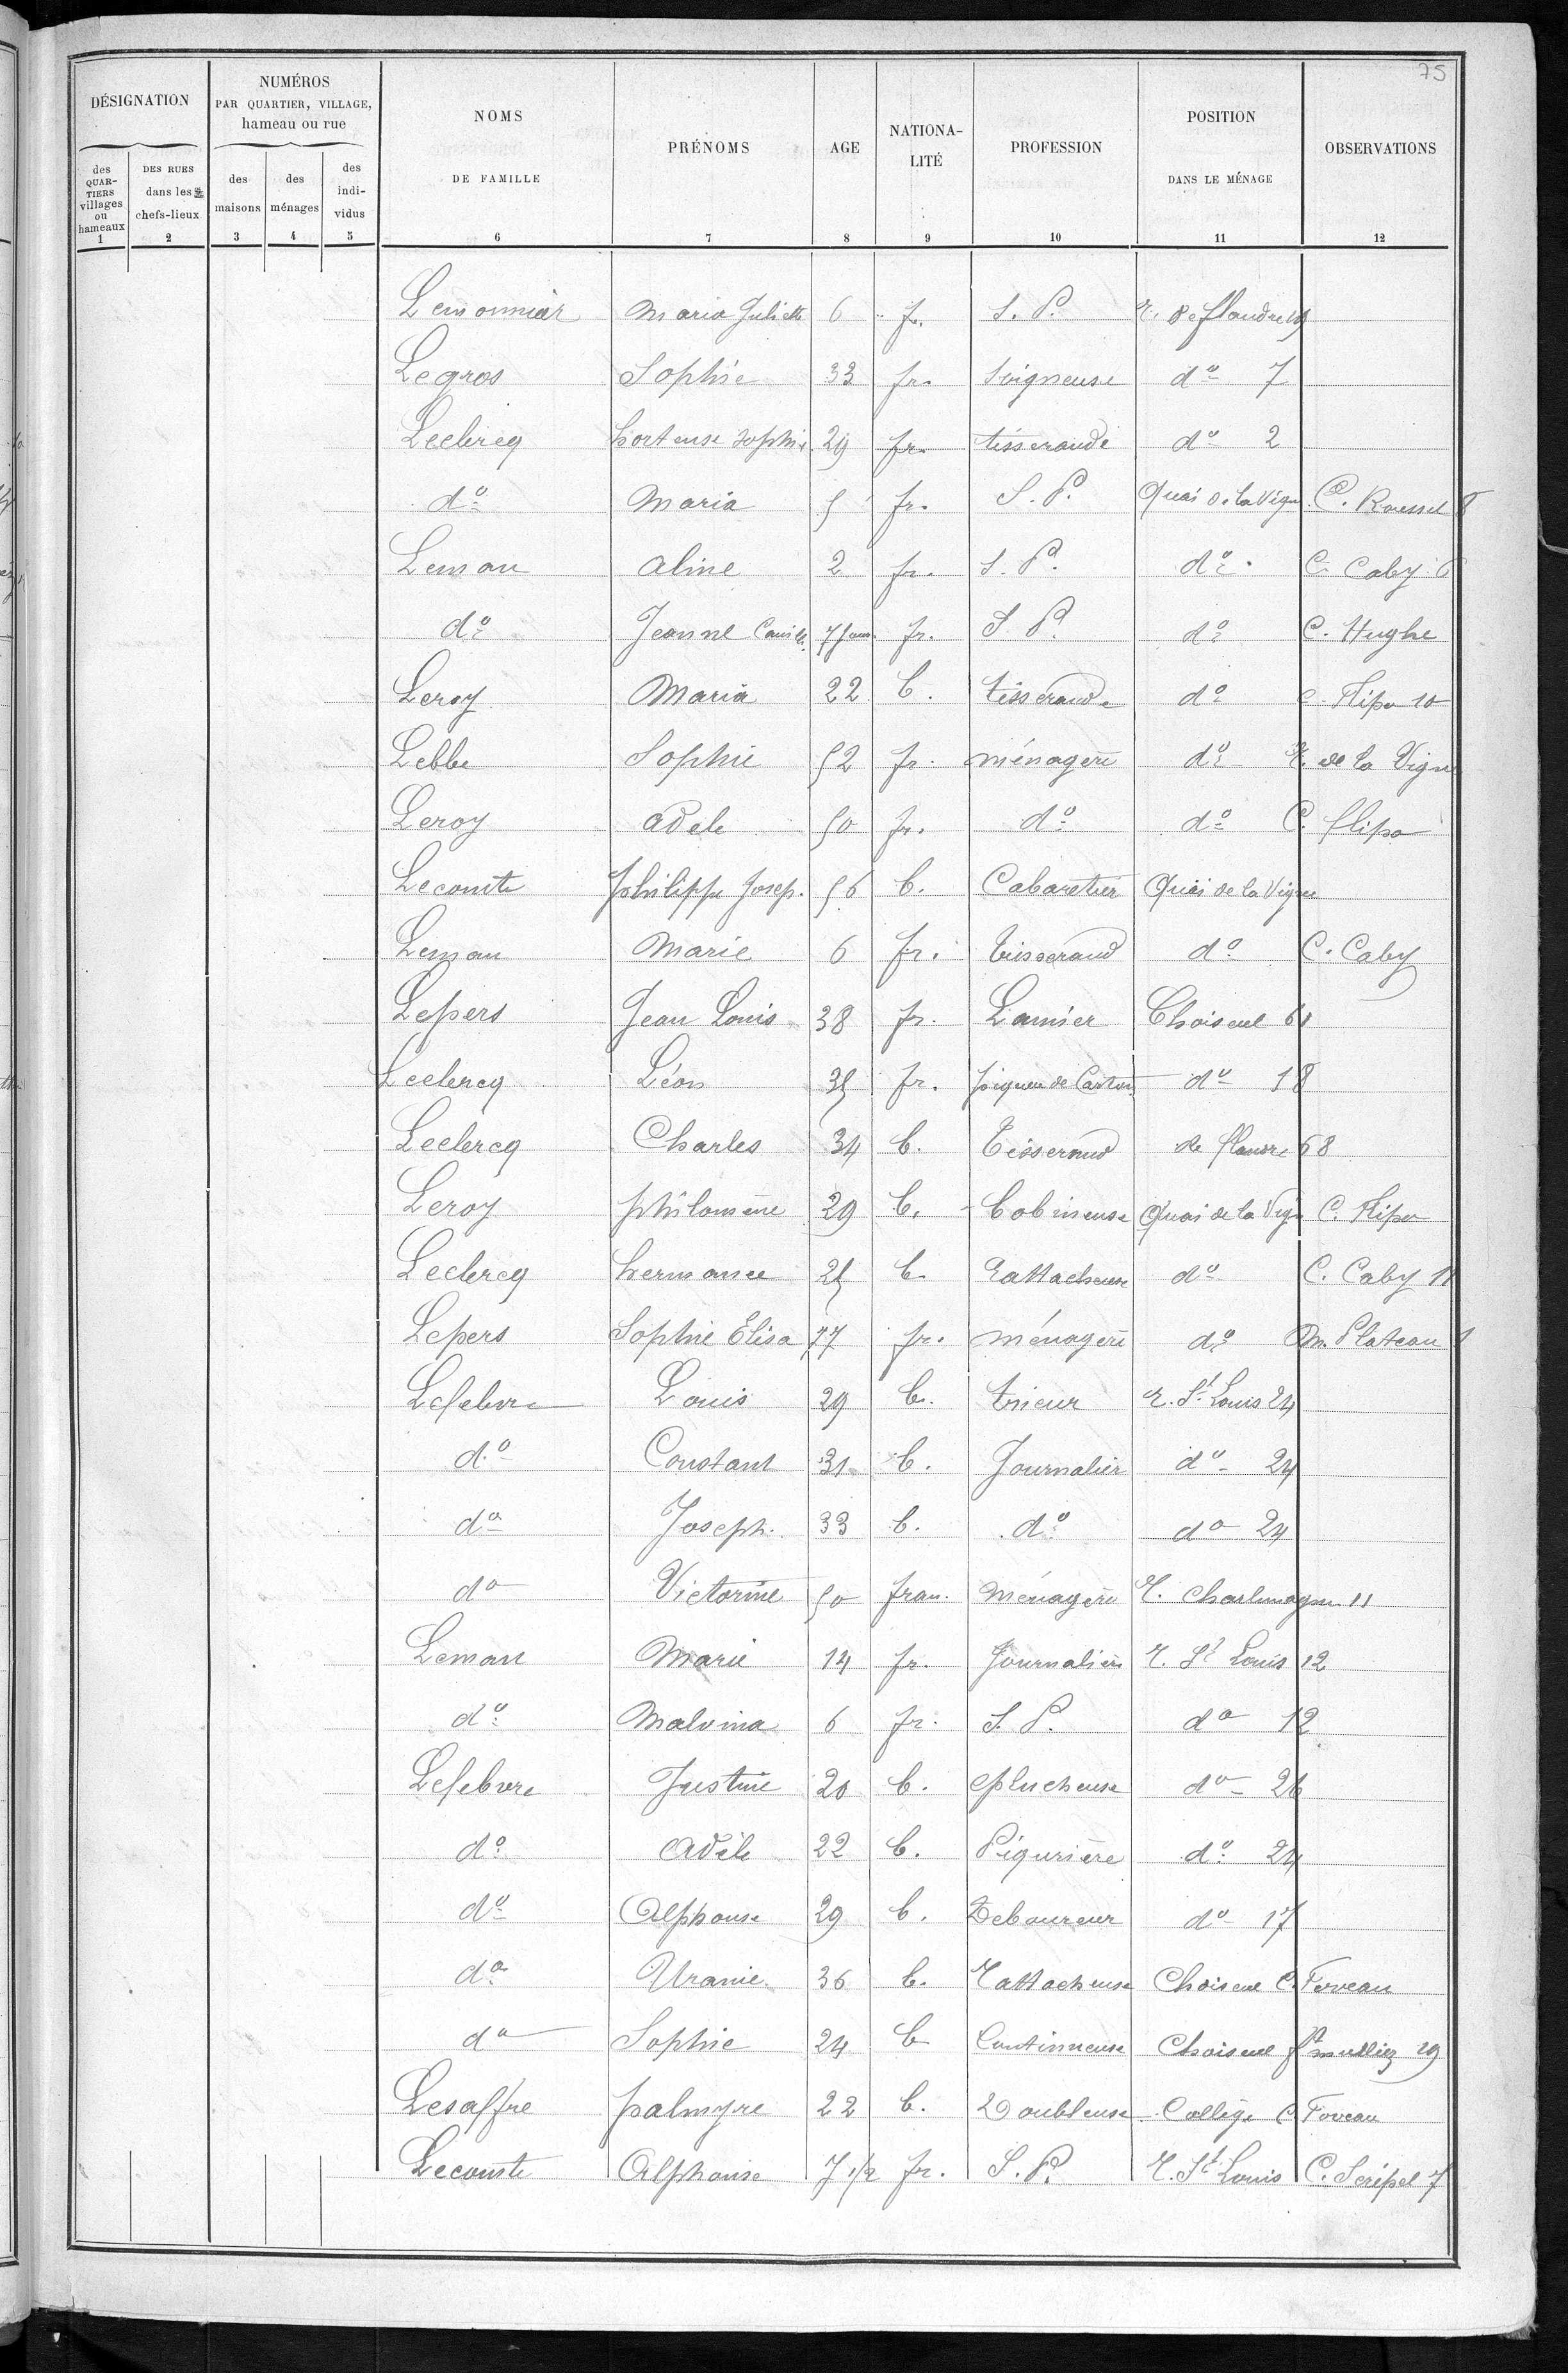 75
DÉSIGNATION
NUMÉROS
PAR QUARTIER, VILLAGE,
hameau ou rue
NOMS
DE FAMILLE
PRÉNOMS
AGE
NATIONA-
LITÉ
PROFESSION
POSITION
DANS LE MÉNAGE
OBSERVATIONS
des
QUAR-
TIERS
villages
ou
hameaux
DES RUES
dans les
chefs-lieux
des
maisons
des
ménages
des
indi-
vidus
1 2 3 4 5 6 7 8 9 10 11 12
Lemonnier Maria Juliette 6 fr. S.P. r. de flandre 19
Legros Sophie 33 fr. Soigneuse do 7
Leclercq hortense sophie 29 fr. tisserande do 2
do Maria 5 fr. S.P. Quai de la Vigne C. Roussel 8
Leman Aline 2 fr. S.P. do C. Caby 6
do Jeanne Camille 7 jours fr. S P. do C. Hughe
Leroy Maria 22 b. tisserande do c. Flipo 10
Lebbe Sophie 52 fr. ménagère do r. de la Vigne
Leroy adele 50 fr. do do C. flipo
Lecomte philippe Josep. 56 b. Cabaretier Quai de la Vigne
Leman Marie 6 fr. tisserand do C. Caby
Lepers Jean Louis 38 fr. Lamier Choiseul 61
Leclercq Léon 35 fr. piqueur de Carton do 18
Leclercq Charles 34 b. Tisserand de flandre 68
Leroy philomène 29 b. bobineuse Quai de la Vign C. Flipo
Leclercq hermance 25 b Rattacheuse do C. Caby 11
Lepers Sophie Élisa 77 fr. ménagère do m. Plateau 1
Lefebvre Louis 29 b. trieur r. St Louis 24
do Constant 31 b. Journalier do 24
do Joseph 33 b. do do 24
do Victorine 50 fran. Ménagère r. Charlemagne 11
Leman Marie 14 fr. Journalière r. St Louis 12
do Malvina 6 fr. S.P. do 12
Lefebvre Justine 20 b. éplucheuse do 26
do Adèle 22 b. Piqurière do 24
do Alphonse 29 b. Deboureur do 17
do Uranie 36 b. rattacheuse Choiseul C. Ferveau
do Sophie 24 b Continueuse Choiseul 29
Lesaffre palmyre 22 b. Doubleuse Collège C. Foveau
Lecomte Alphonse 7 1/2 fr. S.P. r. St Louis C. Scrépel 7